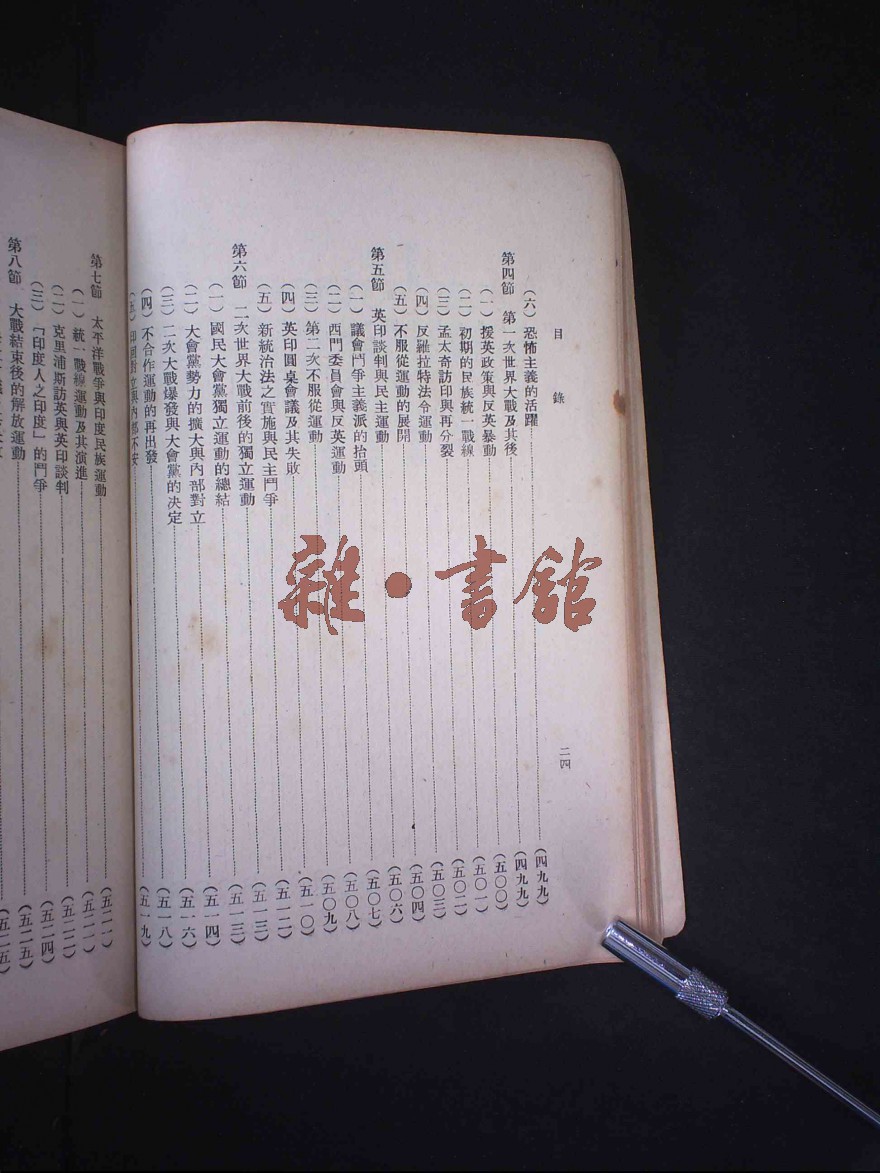 目錄
二四
（六）恐怖主義的活躍（四九九）
第四節　第一次世界大戰及其後（四九九）
（一）援英政策與反英暴動（五〇〇）
（二）初期的民族統一戰線（五〇一）
（三）孟太奇訪印與再分裂（五〇二）
（四）反羅拉特法令運動（五〇三）
（五）不服從運動的展開（五〇四）
第五節　英印談判與民主運動（五〇六）
（一）議會鬥爭主義派的抬頭（五〇七）
（二）西門委員會與反英運動（五〇八）
（三）第二次不服從運動（五〇九）
（四）英印圓桌會議及其失敗（五一〇）
（五）新統治法之實施與民主鬥爭（五一二）
第六節　二次世界大戰前後的獨立運動（五一三）
（一）國民大會黨獨立運動的總結（五一三）
（二）大會黨勢力的擴大與內部對立（五一四）
（三）二次大戰爆發與大會黨的決定（五一六）
（四）不合作運動的再出發（五一八）
（五）印回對立與內部不安（五一九）
第七節　太平洋戰爭與印度民族運動（五二一）
（一）統一戰線運動及其演進（五二一）
（二）克里浦斯訪英與英印談判（五二二）
（三）「印度人之印度」的鬥爭（五二四）
第八節　大戰結束後的解放運動（五二五）
（五二五）
雜·書館